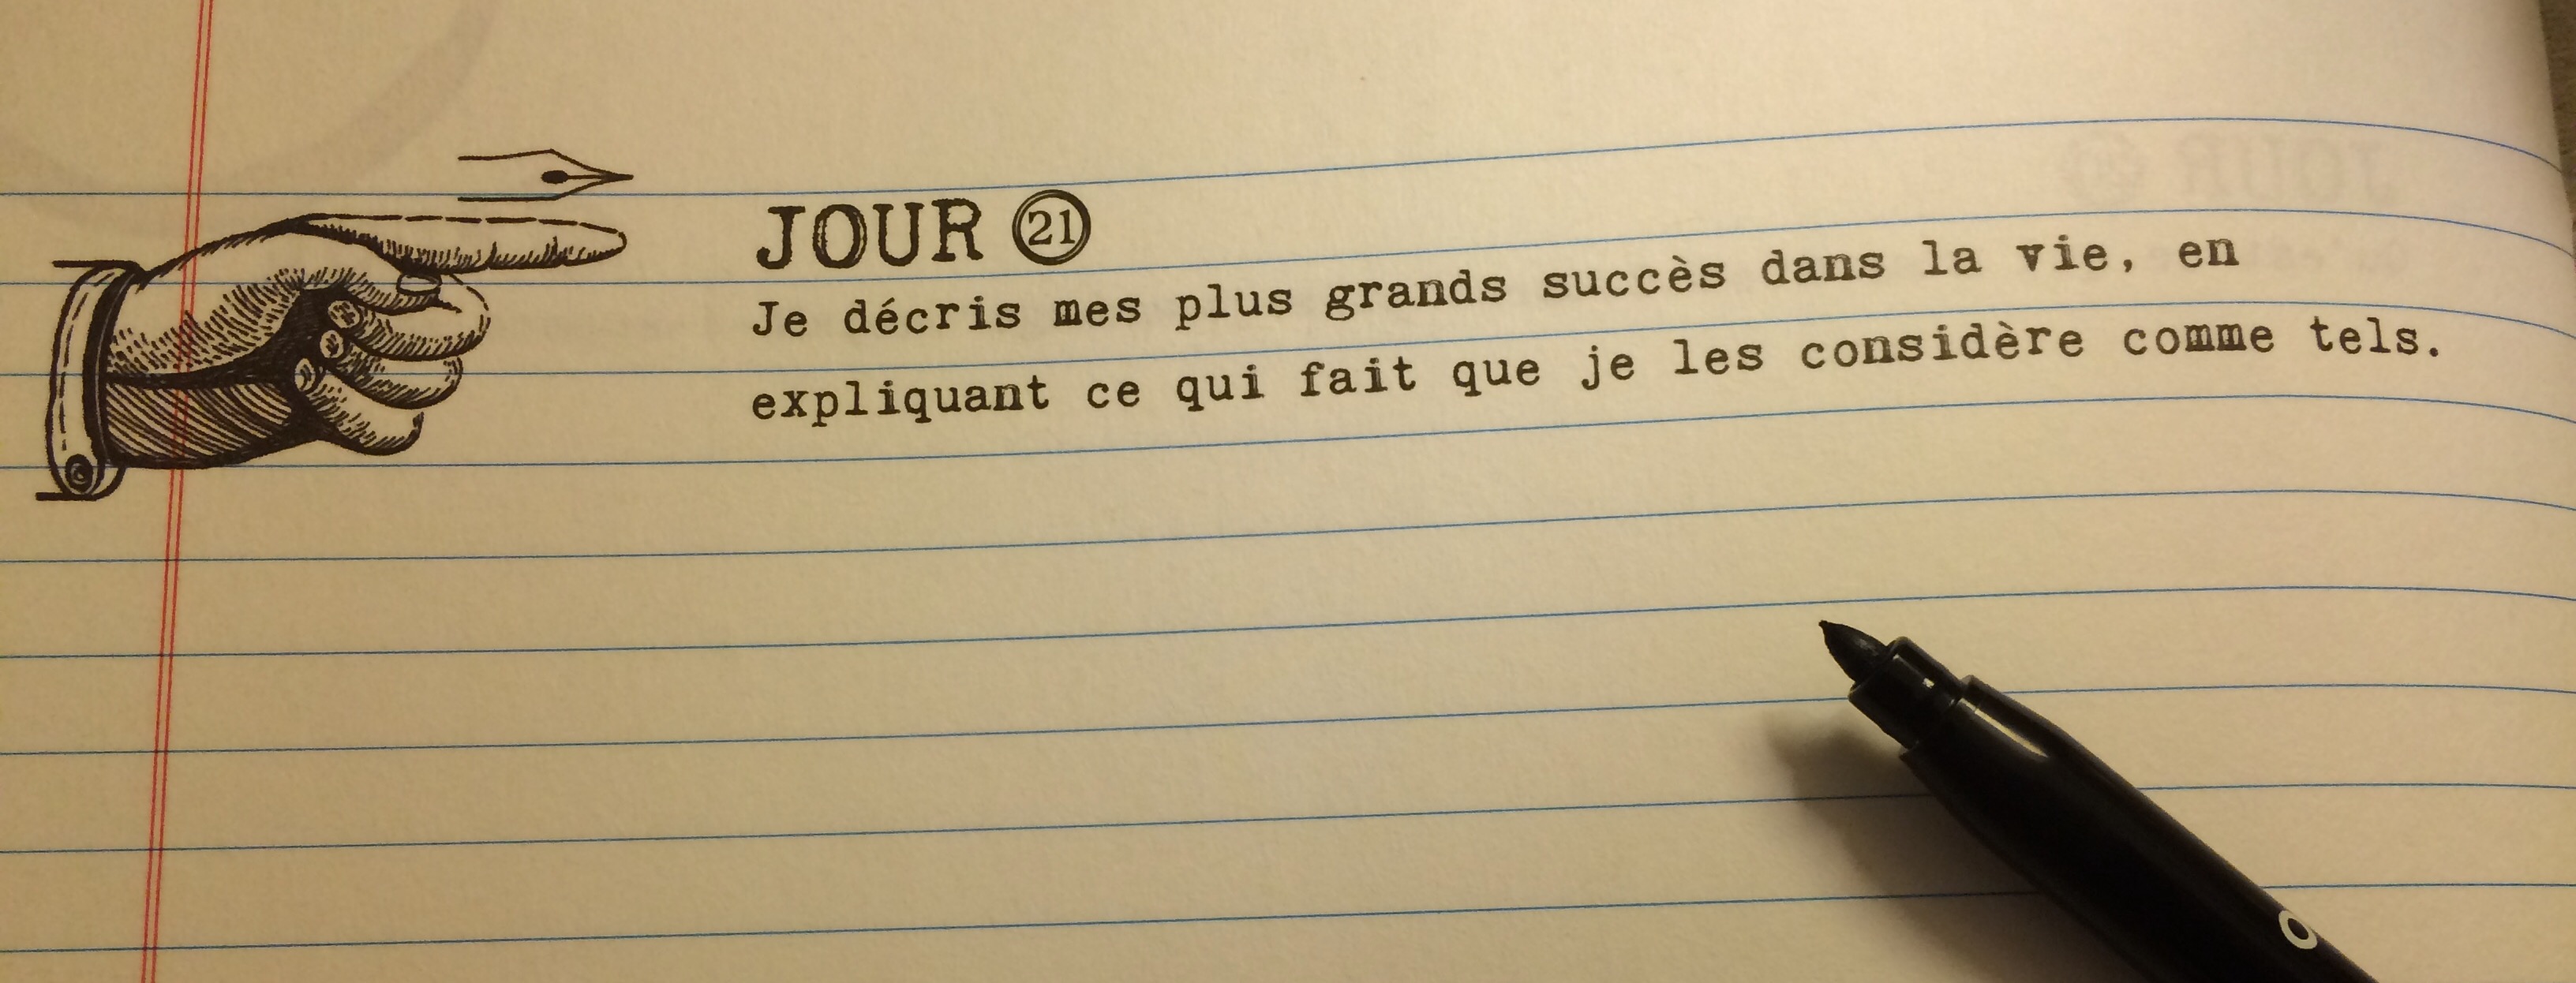 JOUR 21
Je décris mes plus grands succès dans la vie, en
expliquant ce qui fait que je les considère comme tels.